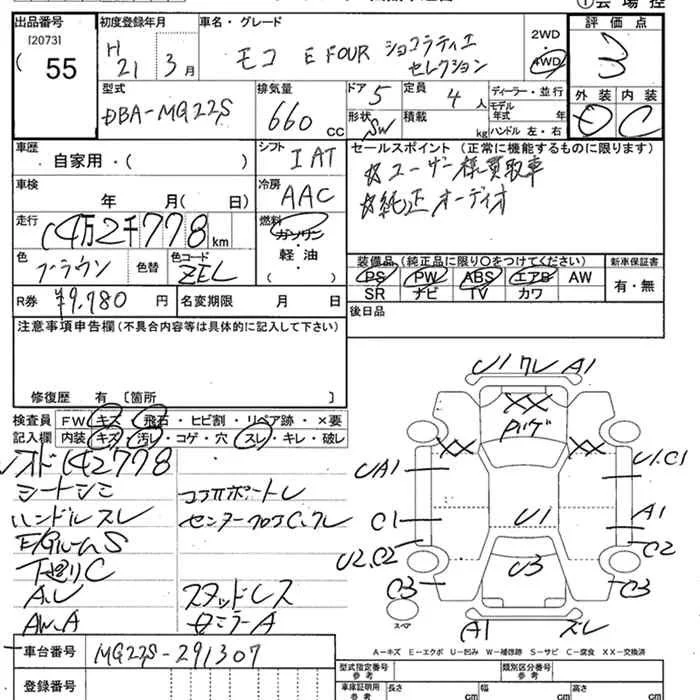 出品番号 初度登録年月 車名・グレード 2WD 評価点
[2073]
55 H 21 3月 モコ E FOUR ショコラティエ セレクション 4WD 3
型式 排気量 ドア 定員 ディーラー・並行 外装 内装
DBA-MG22S 660 CC 5 4人 モデル年式 年 D C
形状 SW 積載 kg ハンドル 左・右
車歴 シフト セールスポイント(正常に機能するものに限ります)
自家用・( ) IAT ☆ユーザー様買取車
車検 冷房 ☆純正オーディオ
年 月( 日) AAC
走行 燃料
14万2千778km ガソリン
色 色替 色コード 軽油 装備品(純正品に限り○をつけてください) 新車保証書
ブラウン ZEL ( ) PS PW ABS エアB AW 有・無
R券 ¥9,780円 名変期限 月 日 SR ナビ TV カワ
注意事項申告欄(不具合内容等は具体的に記入して下さい) 後日品
修復歴 有 [箇所 ]
検査員 FW キズ・飛石・ヒビ割・リペア跡・×要
記入欄 内装 キズ・汚レ・コゲ・穴・スレ・キレ・破レ
142778
シートシミ
ハンドルスレ
E/GルームS
下廻りC
A.U スタッドレス
AW.A
U1 ワレ A1
XX
XX XX
UA1 U1.C1
C1 U1 A1
U2.C2 C2
C3 U3 C3
スペア
A1 スレ
A-キズ E-エクボ U-凹み W-補修跡 S-サビ C-腐食 XX-交換済
車台番号 MG22S-291307
登録番号
型式指定番号 参考 類別区分番号 参考
車庫証明用 参考 長さ cm 幅 cm 高さ cm